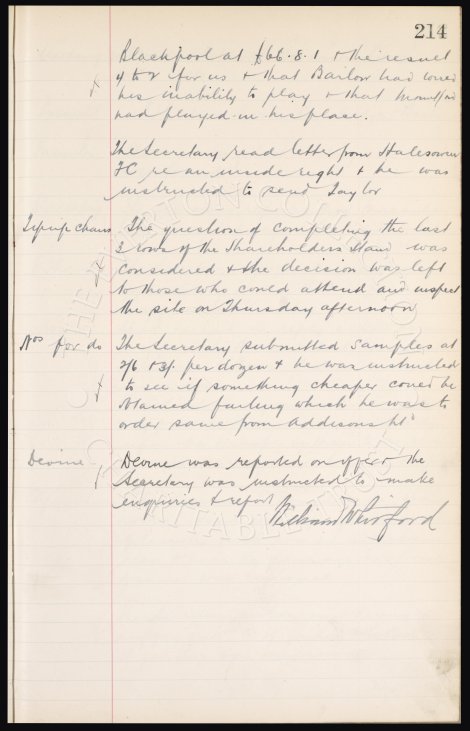 214
Blackpool at £66.8.1 & the result
4 to 2 for us & that Barlow had wired
his inability to play & that Mountford
had played in his place.
The Secretary read letter from Halesowen
FC re an inside right & he was
instructed to send Taylor
Tip up chairs The question of completing the last
3 rows of the Shareholders Stand was
considered & the decision was left
to those who could attend and inspect
the site on Thursday afternoon
Nos for do The Secretary submitted samples at
2/6 & 3/- per dozen & he was instructed
to see if something cheaper could be
obtained failing which he was to
order same from Addisons Ld
Devine Devine was reported on offer & the
Secretary was instructed to make
enquiries & report
THE EVERTON COLLECTION
CHARITABLE TRUST